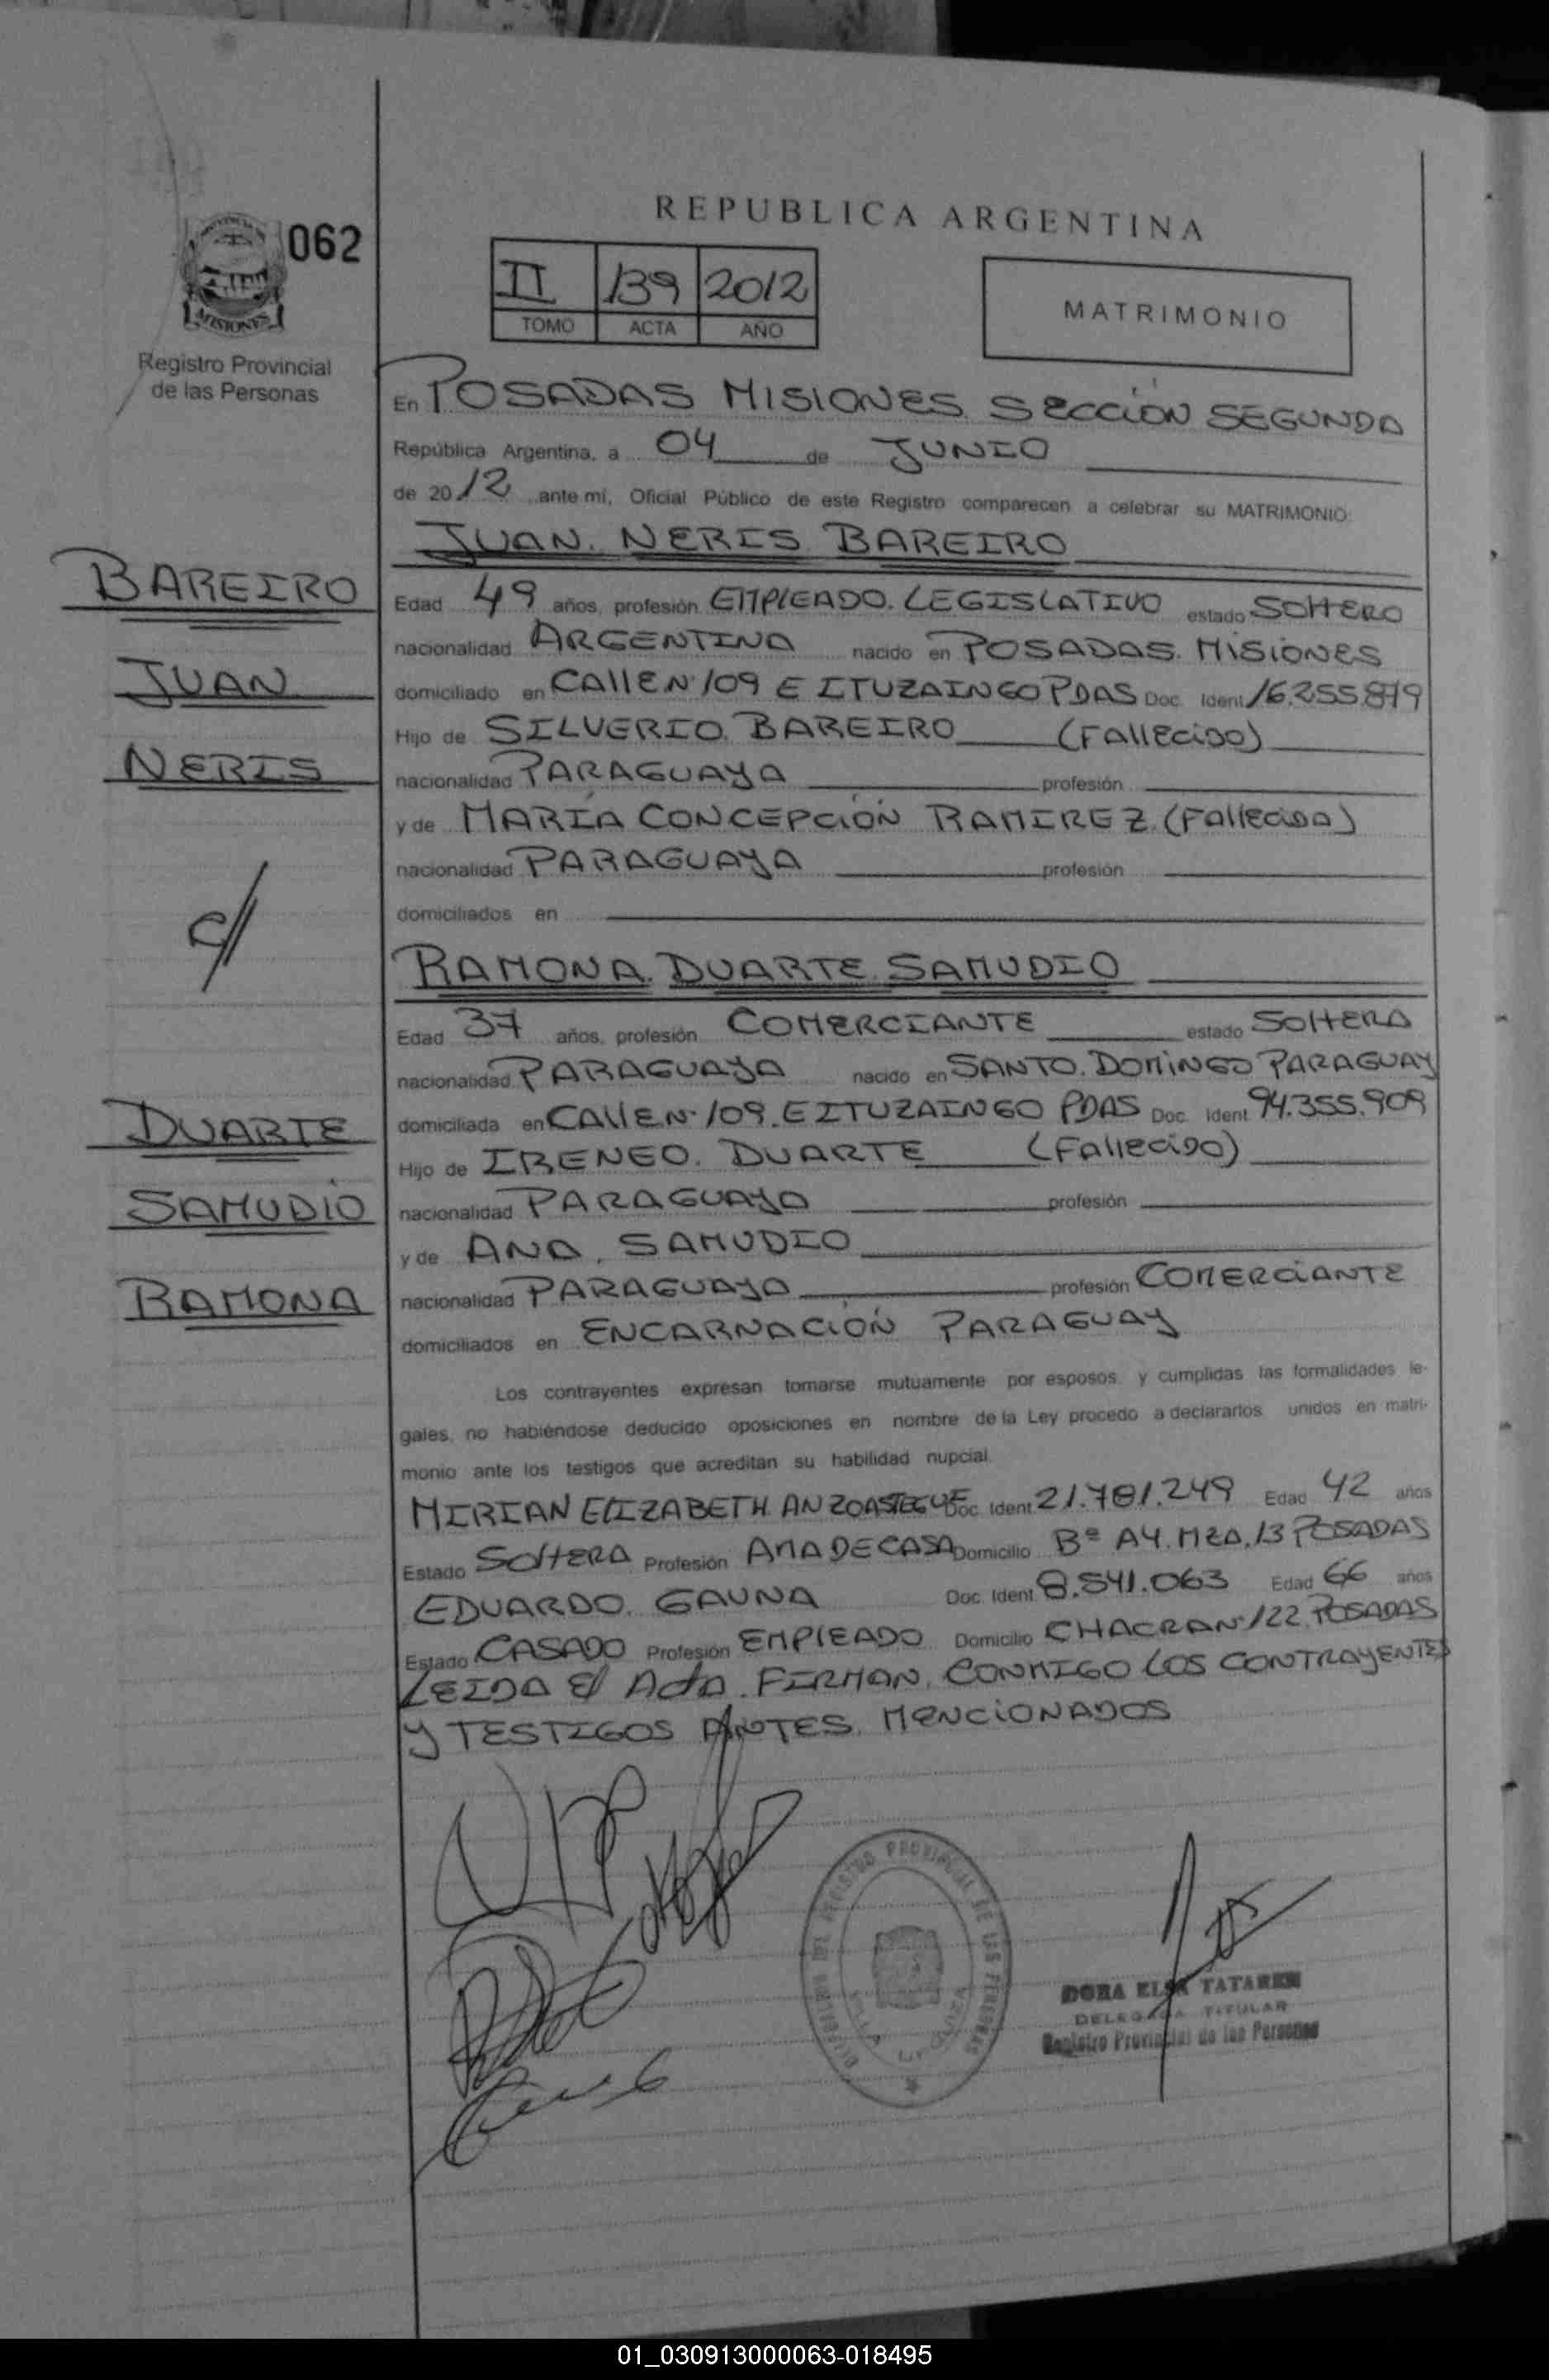 REPUBLICA ARGENTINA
062
MISIONES
Registro Provincial
de las Personas
II 139 2012
TOMO ACTA AÑO
MATRIMONIO
En POSADAS MISIONES SECCIÓN SEGUNDA
República Argentina, a 04 de JUNIO
de 2012 ante mi, Oficial Público de este Registro comparecen a celebrar su MATRIMONIO:
JUAN NERIS BAREIRO
BAREIRO
JUAN
NERIS
Edad 49 años, profesión EMPLEADO LEGISLATIVO estado SOLTERO
nacionalidad ARGENTINA nacido en POSADAS MISIONES
domiciliado en CALLE Nº 109 E ITUZAINGO PDAS Doc. Ident. 16.255.879
Hijo de SILVERIO BAREIRO (FALLECIDO)
nacionalidad PARAGUAYA profesión
y de MARÍA CONCEPCIÓN RAMIREZ (FALLECIDA)
nacionalidad PARAGUAYA profesión
domiciliados en
c/
RAMONA DUARTE SAMUDIO
Edad 37 años, profesión COMERCIANTE estado SOLTERA
nacionalidad PARAGUAYA nacido en SANTO DOMINGO PARAGUAY
domiciliada en CALLE Nº 109 E ITUZAINGO PDAS Doc. Ident. 94.355.909
DUARTE
SAMUDIO
RAMONA
Hijo de IRENEO DUARTE (FALLECIDO)
nacionalidad PARAGUAYA profesión
y de ANA SAMUDIO
nacionalidad PARAGUAYA profesión COMERCIANTE
domiciliados en ENCARNACIÓN PARAGUAY
Los contrayentes expresan tomarse mutuamente por esposos y cumplidas las formalidades le-
gales, no habiéndose deducido oposiciones en nombre de la Ley procedo a declararlos unidos en matri-
monio ante los testigos que acreditan su habilidad nupcial.
MIRIAN ELIZABETH ANZOASTEGUE Doc. Ident. 21.781.249 Edad 42 años
Estado SOLTERA Profesión AMA DE CASA Domicilio Bº A4 MZA. 13 POSADAS
EDUARDO GAUNA Doc. Ident. 8.541.063 Edad 66 años
Estado CASADO Profesión EMPLEADO Domicilio CHACRA Nº 122 POSADAS
LEIDA EL ACTA FIRMAN CONMIGO LOS CONTRAYENTES
Y TESTIGOS ANTES MENCIONADOS
REGISTRO PROVINCIAL DE LAS PERSONAS
DORA ELSA
DELEGADA TITULAR
Registro Provincial de las Personas
01_030913000063-018495